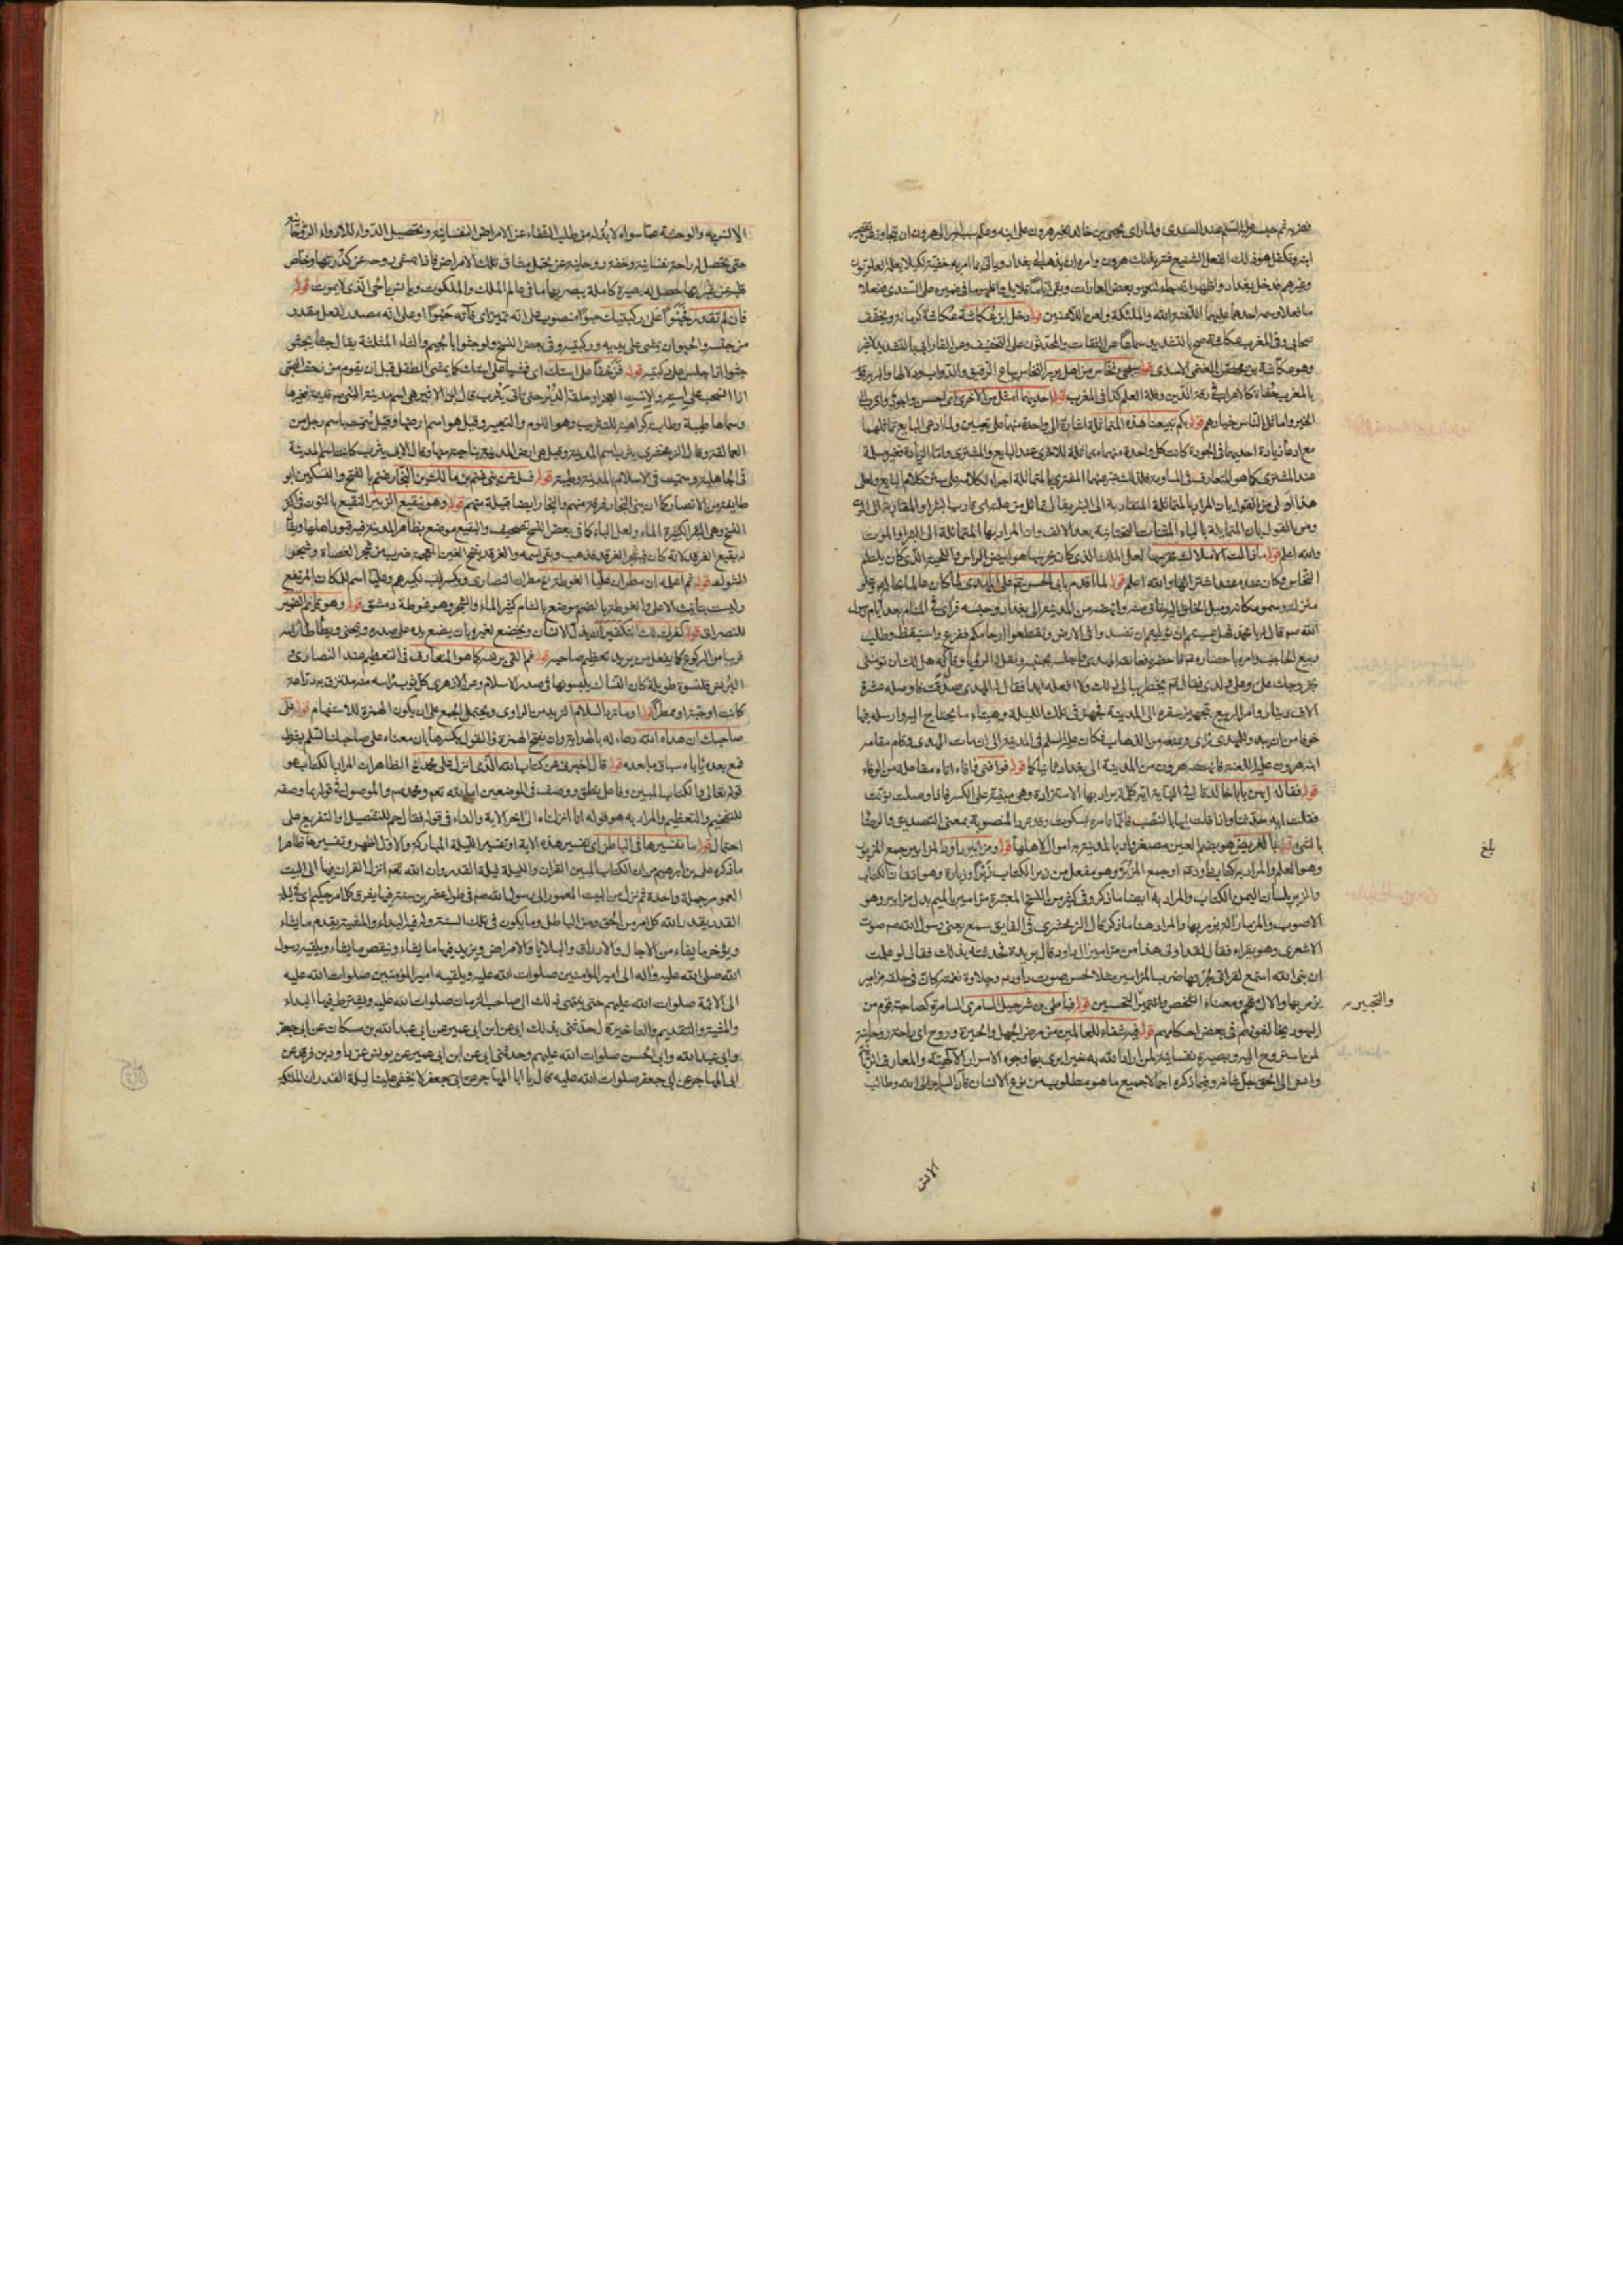 فضربه ثم حبسه عليه السلم عند السندى ولما راى يحيى بن خالد تغير هرون على ابنه
ابنه وتكفل هو ذلك الفعل الشنيع فقربه لذلك هرون وامره ان يذهب الى بغداد وياتى بما امر به خفية لكيلا يعلم العلويون
وغيرهم فدخل بغداد واظهر انه جاء لتعمير بعض العمارات وبقى اياما قلايل واظهر ما فى ضميره على السندى ففعلا
ما فعلا وسم احدهما عليهما اللعنة الله والملئكة ولعن اللاعنين قوله دخل ابن عكاشة عكاشة كرمانة ويخفف
صحابى وفى المغرب عكاشة بالتشديد سماعا من الثقات والمحدثون على التخفيف وعن الفارابى بالتشديد لا غير
وهو عكاشة بن محصن الغنمى الاسدى قوله نخاس من اهل بربر النخاس بياع الرقيق والدواب ودلالها والبربر قوم
بالمغرب جفاة كالاعراب فى رقة الدين وقلة العلم كذا فى المغرب قوله احديهما امثل من الاخرى اى احسن واجود واقرب الى
الخير واماثل الناس خيارهم قوله بكم تبيعنا هذه المتماثلة اشارة الى واحدة منهما على تعيين ولما ادعى البايع تماثلهما
مع ادعائه زيادة احديهما فى الجودة كانت كل واحدة منهما مماثلة للاخرى عند البايع والمشترى واما الزيادة فغير مسلمة
عند المشترى كما هو المتعارف فى المساومة فلذلك عبر عنها المشترى بالمتماثلة اجراء لكلامه على سنن كلام البايع ولعل
هذا اولى من القول بان المراد بالمتماثلة المتقاربة الى البئر
ومن القول بان المتمايلة بالياء المثناة التحتانية بعد الالف وان المراد بها المتمائلة الى البئر او الموت
والله اعلم قوله
النخاس فكان عنده عند اشترائها والله اعلم قوله لما اقدم بابى الحسن
منزلته وسمو مكانه وميل الخلايق اليه
الله ص وقال له يا محمد فهل عسيتم ان توليتم ان تفسدوا فى الارض وتقطعوا ارحامكم ففزع واستيقظ وطلب
ربيع الحاجب وامره باحضاره فلما حضر عانقه المهدى واجلسه بجنبه ونقل له الرؤيا وقال له هل لك ان تؤمننى
بخروجك على وعلى ولدى فقال لم يخطر ببالى ذلك ولا افعله ابدا فقال له المهدى صدقت فاوصله عشرة
الاف دينار وامر الربيع بتجهيز سفره الى المدينة فجهز فى تلك الليلة وهيئاء ما يحتاج اليه وارسله فيها
خوفا من ان يبدو للمهدى راى ويمنعه من الذهاب فكان عليه السلم فى المدينة الى ان مات المهدى وقام مقامه
ابنه هرون عليه اللعنة فاشخصه هرون من المدينة الى بغداد ثانيا كما قوله فوافنى وافاه اتاه مفاعلة من الوفاء
قوله فقال له ايه يا ابا خالد قال فى النهاية ايه كلمة يراد بها الاستزادة وهى مبنية على الكسر فاذا وصلت نونت
فقلت ايه حدثنا واذا قلت ايها بالنصب فانما تامره بسكوت وقد ترد المنصوبة بمعنى التصديق والرضا
بالشئ قوله بالعريض هو بضم العين مصغر واد بالمدينة به اموال لاهلها قوله ومزابير داود المزابير جمع المزبور
والزبر بلسان اليمن الكتاب والمراد به ايضا ما ذكر وفى كثير من النسخ المعتبرة مزامير بالميم بدل مزابير وهو
الاصوب والمزمار الة يزمر بها والمراد هنا ما ذكر قال الزمخشرى فى الفايق سمع يعنى رسول الله ص صوت
الاشعرى وهو يقراء فقال لقد اوتى هذا من مزامير ال داود قال بريدة فحدثته بذلك فقال لو علمت
ان نبى الله استمع لقراتى لحبرتها ضرب المزامير مثلا لحسن صوت داود وحلاوة نغمه كان فى حلقه مزامير
يزمر بها والال مقحم ومعناه الشخص والتحبير التحسين قوله فباطى بن شرحبيل السامرى السامرة كصاحبة قوم من
اليهود يخالفونهم فى بعض احكامهم قوله فيه شفاء للعالمين من مرض الجهل والحيرة وروح اى راحة روحانية
لمن استروح اليه وبصيرة نفسانية لمن اراد الله به خيرا يرى بها وجوه الاسرار الالهية والمعارف الربانية
وانس الى الحق جل شانه وفيما ذكره اجمالا جميع ما هو مطلوب من نوع الانسان فان الساير الى الله وطالب
بلغ
والتحبير
الانس
الانس به والوحشة عما سواه لا بد له من طلب الشفاء عن الامراض النفسانية وتحصيل الدواء للادواء الروحانية
حتى يحصل له راحة نفسانية وخفة روحانية عن تحمل مشاق تلك الامراض فاذا صفى روحه عن كدرتها وخلص
قلبه عن تغيرها حصل له بصيرة كاملة يبصر بها ما فى عالم الملك والملكوت ويانس بالحى الذى لا يموت قوله
فان لم تقدر فحبوا على ركبتيك حبوا منصوب على انه تميز اى فاته حبوا او على انه مصدر لفعل مقدر
من جنسه والحبو ان يمشى على يديه وركبتيه وفى بعض النسخ ولو جثوا بالجيم والثاء المثلثة يقال جثا يجثو
جثوا اذا جلس على ركبتيه قوله فزحفا على استك اى فمشيا على استك كما يمشى الطفل قبل ان يقوم من زحف الصبى
اذا انسحب على استه والاست العجز او حلقة الدبر حتى تاتى يثرب قال ابن الاثير هى اسم مدينة النبى ص قديمة فغيرها
وسماها طيبة وطابة كراهية للتثريب وهو اللوم والتعيير وقيل هو اسم ارضها وقيل سميت باسم رجل من
العمالقة وقال الزمخشرى يثرب اسم المدينة وقيل هى ارض المدينة بناحية منها وقال الابى يثرب كانت اسم المدينة
فى الجاهلية وسميت فى الاسلام بالمدينة وطيبة قوله فسل عن بنى غنم بن مالك بن النجار غنم بالفتح والتسكين ابو
طايفة من الانصار كما ان بنى النجار فرقة منهم والنجار ايضا قبيلة منهم قوله وهو بنقيع الزبير النقيع بالنون فى اكثر
النسخ وهى البئر الكثيرة الماء ولعل الباء كما فى بعض النسخ تصحيف والبقيع موضع بظاهر المدينة فيه قبور اهلها ويقال
له بقيع الغرقد لانه كان فيه شجر الغرقد فذهب وبقى اسمه والغرقد بفتح الغين المعجمة ضرب من شجر العضاة وشجر
الشوك قوله ثم اعلمه ان مطران عليا الغوطة
وليست بتانيث الاعلى والغوطة بالضم موضع بالشام كثير الماء والشجر وهو غوطة دمشق
للنصرانى قوله كفرت لك التكفير ان يذل الانسان ويخضع لغيره بان يضع يده على صدره وينحنى ويطاطا راسه
قريبا من الركوع كما يفعل من يريد تعظيم صاحبه قوله ثم القى برنسه كما هو المتعارف فى التعظيم عند النصارى و
البرنس قلنسوة طويلة كان النساك يلبسونها فى صدر الاسلام وعن الازهرى كل ثوب راسه منه ملتزق به دراعة
كانت او جبة او ممطرا قوله او ما ترد السلام الترديد من الراوى ويحتمل الجمع على ان يكون الهمزة للاستفهام قوله على
صاحبك ان هداه الله دعاء له بالهداية وان بفتح الهمزة والقول بكسرها بان معناه على صاحبك السلم بشرط
قوله قال اخبرنى عن كتاب الله الذى انزل على محمد الظاهر ان المراد بالكتاب هو
قوله تعالى والكتاب المبين وفاعل نطق ووصف فى الموضعين
للتفخيم والتعظيم والمراد به هو قوله انا انزلناه الى اخر الاية والفاء فى قوله فقال حم للتفصيل او التفريع على
احتمال قوله ما تفسيرها فى الباطن اى تفسير هذه الاية او تفسير الليلة المباركة والاول اظهر وتفسيرها ظاهرا
ما ذكره على بن ابرهيم من ان الكتاب المبين القران والليلة ليلة القدر وان الله تعم انزل القران فيها الى البيت
المعمور جملة واحدة ثم نزل من البيت المعمور الى رسول الله ص فى طول عشرين سنة فيها يفرق كل امر حكيم اى فى ليلة
القدر يقدر الله كل امر من الحق ومن الباطل وما يكون فى تلك السنة وله فيه البداء والمشية يقدم ما يشاء
ويؤخر ما يشاء من الاجال والارزاق والبلايا والامراض ويزيد فيها ما يشاء وينقص ما يشاء ويلقيه رسول
الله صلى الله عليه واله الى امير المؤمنين صلوات الله عليه ويلقيه امير المؤمنين صلوات الله عليه
الى الائمة صلوات الله عليهم حتى ينتهى ذلك الى صاحب الزمان صلوات الله عليه ويشترط فيها البداء
والمشية والتقديم والتاخير قال حدثنى بذلك ابى عن ابن ابى عمير عن ابى عبد الله بن مسكان عن ابى جعفر
وابى عبد الله وابى الحسن صلوات الله عليهم وحدثنى ابى عن ابن ابى عمير عن يونس عن داود بن فرقد عن
ابى المهاجر عن ابى جعفر صلوات الله عليه قال يا ابا المهاجر لا يخفى علينا ليلة القدر ان الملئكة